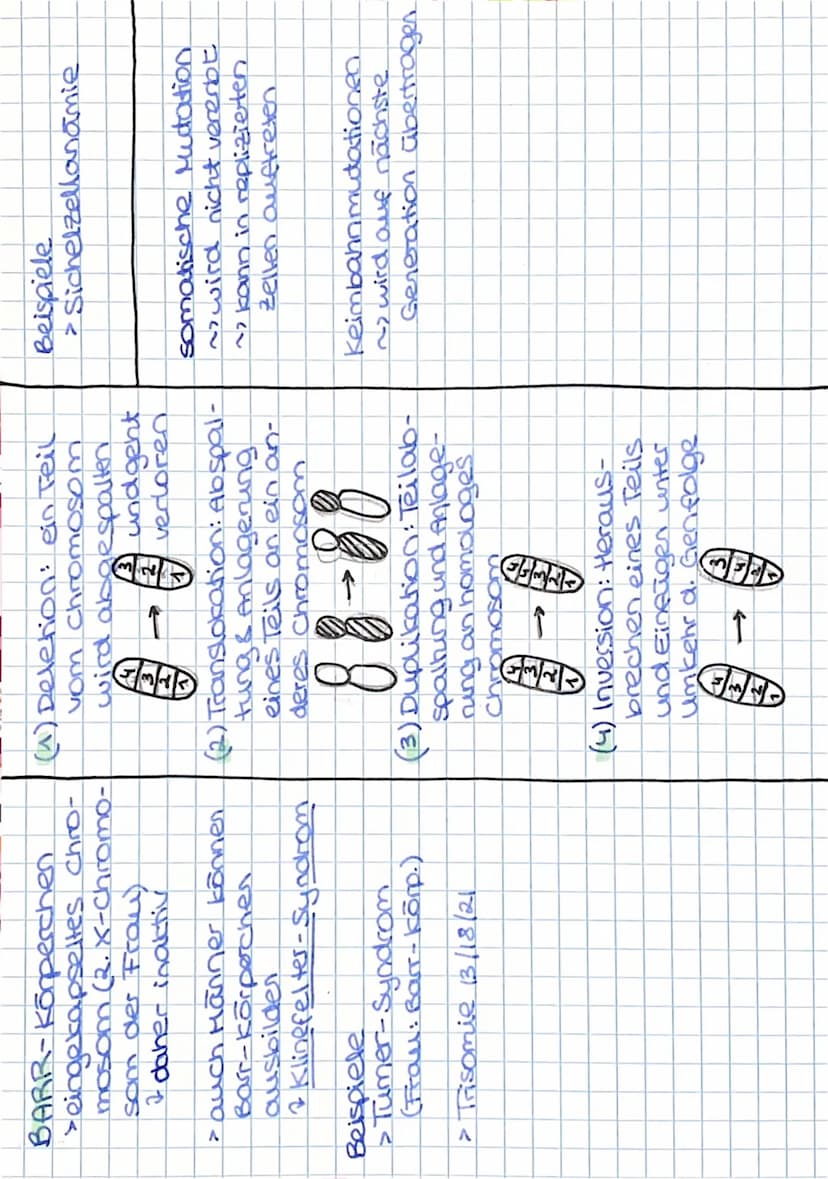 BARR-Körperchen
> eingekapseltes Chro-
mosom (2. X-Chromo-
som der Frau)
↳ daher inaktiv
> auch Männer können
Barr-Körperchen
ausbilden
↳ Klinefelter-Syndrom
Beispiele
> Turner-Syndrom
(Frau: Barr-Körp.)
> Trisomie 13/18/21
(1) Deletion: ein Teil
vom Chromosom
wird abgespalten
und geht
verloren
4 3 2 1 → 3 2 1
(2) Translokation: Abspal-
tung & Anlagerung
eines Teils an ein an-
deres Chromosom
→
(3) Duplikation: Teilab-
spaltung und Anlage-
rung an homologes
Chromosom
4 3 2 1 → 4 4 3 2 1
(4) Inversion: Heraus-
brechen eines Teils
und Einfügen unter
Umkehr d. Genfolge
4 3 2 1 → 3 4 2 1
Beispiele
> Sichelzellanämie
somatische Mutation
~> wird nicht vererbt
~> kann in replizierten
Zellen auftreten
Keimbahnmutationen
~> wird auf nächste
Generation übertragen